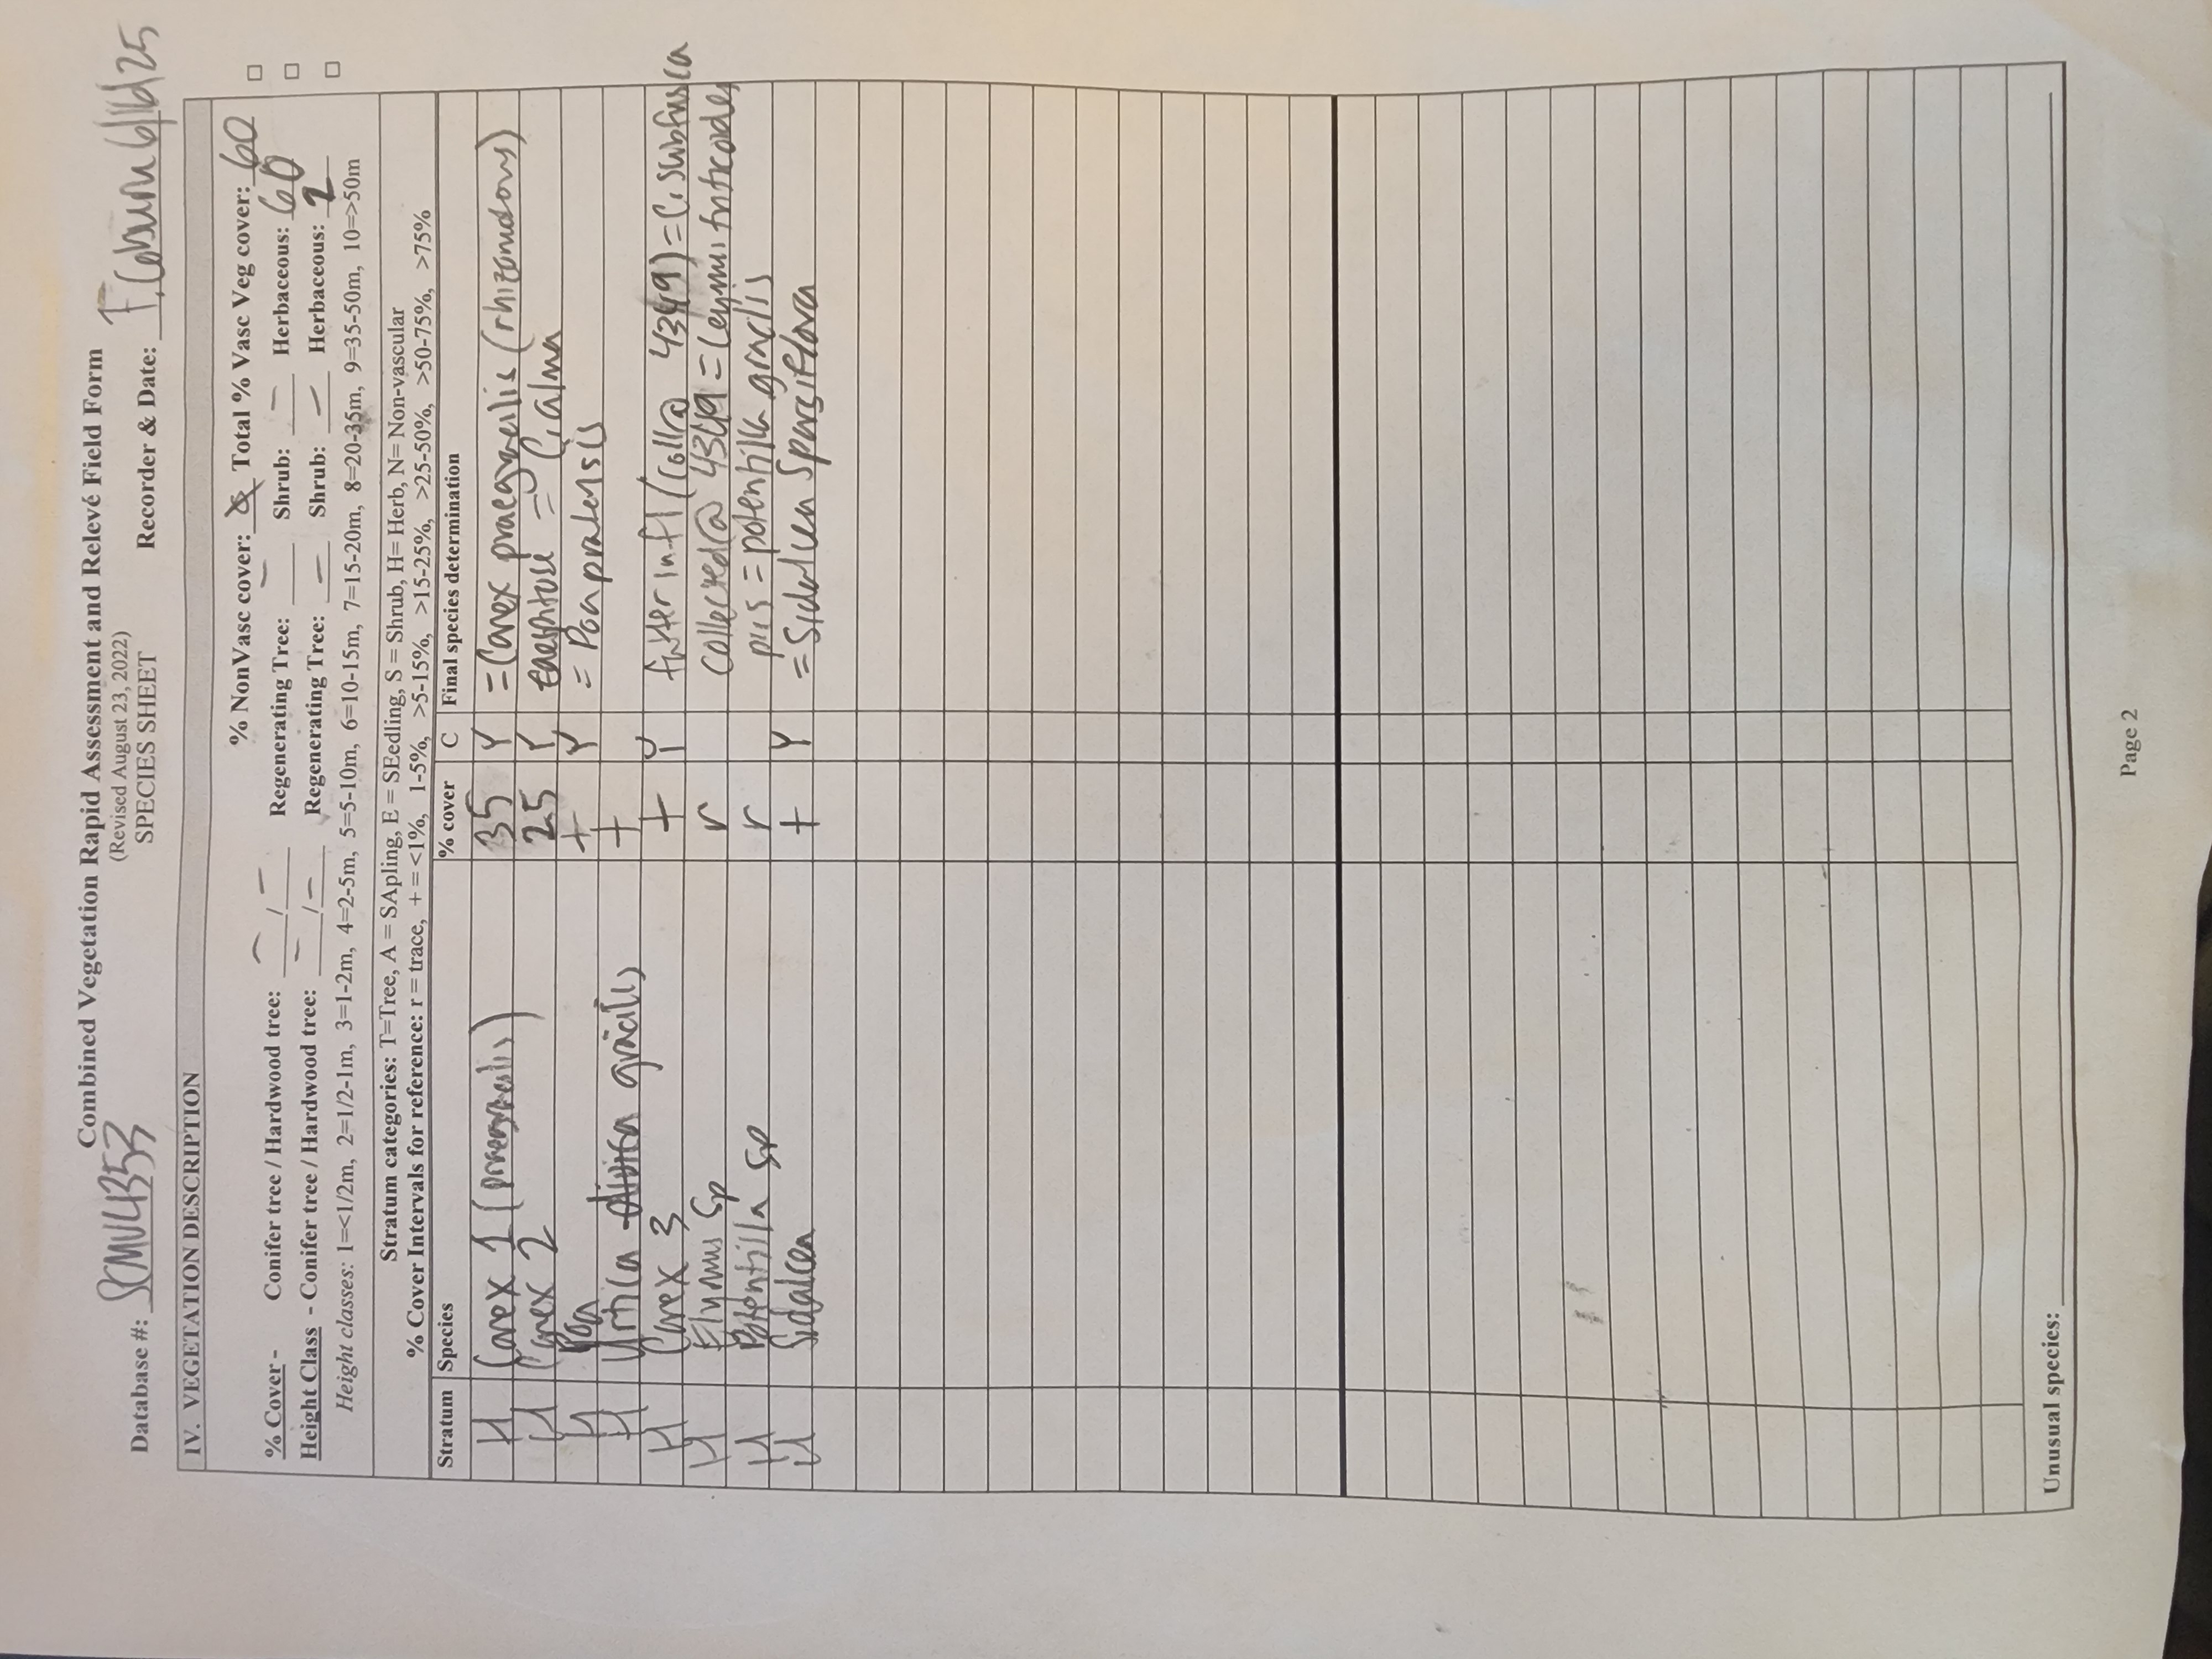 Combined Vegetation Rapid Assessment and Relevé Field Form
(Revised August 23, 2022)
Database #: SCMU4353 SPECIES SHEET Recorder & Date: F. Coburn 6/16/25
IV. VEGETATION DESCRIPTION
% NonVasc cover: Total % Vasc Veg cover: 60
% Cover - Conifer tree / Hardwood tree: – / – Regenerating Tree: – Shrub: – Herbaceous: 60
Height Class - Conifer tree / Hardwood tree: – / – Regenerating Tree: – Shrub: – Herbaceous: 2
Height classes: 1=<1/2m, 2=1/2-1m, 3=1-2m, 4=2-5m, 5=5-10m, 6=10-15m, 7=15-20m, 8=20-35m, 9=35-50m, 10=>50m
Stratum categories: T=Tree, A = SApling, E = SEedling, S = Shrub, H= Herb, N= Non-vascular
% Cover Intervals for reference: r = trace, + = <1%, 1-5%, >5-15%, >15-25%, >25-50%, >50-75%, >75%
Stratum Species % cover C Final species determination
H Carex 1 (praegracilis) 35 Y = Carex praegracilis (rhizomatous)
H Carex 2 25 Y = C. alma
H Poa + Y = Poa pratensis
H Urtica gracilis +
H Carex 3 + Y infl (coll@ 4349) = C. subfusca
H Elymus sp r collected @ 4349 = Leymus triticoides
H Potentilla sp r pics = potentilla gracilis
H Sidalcea + Y = Sidalcea sparsiflora
Unusual species:
Page 2